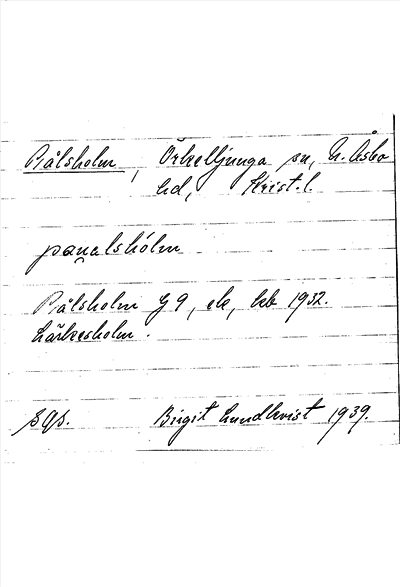 Pålsholm, Örkelljunga sn, N. Åsbo
hd, Krist. l.
Pålsholm G 9, ek, kb 1932.
Lärkesholm.
sgs. Birgit Lundkvist 1939.